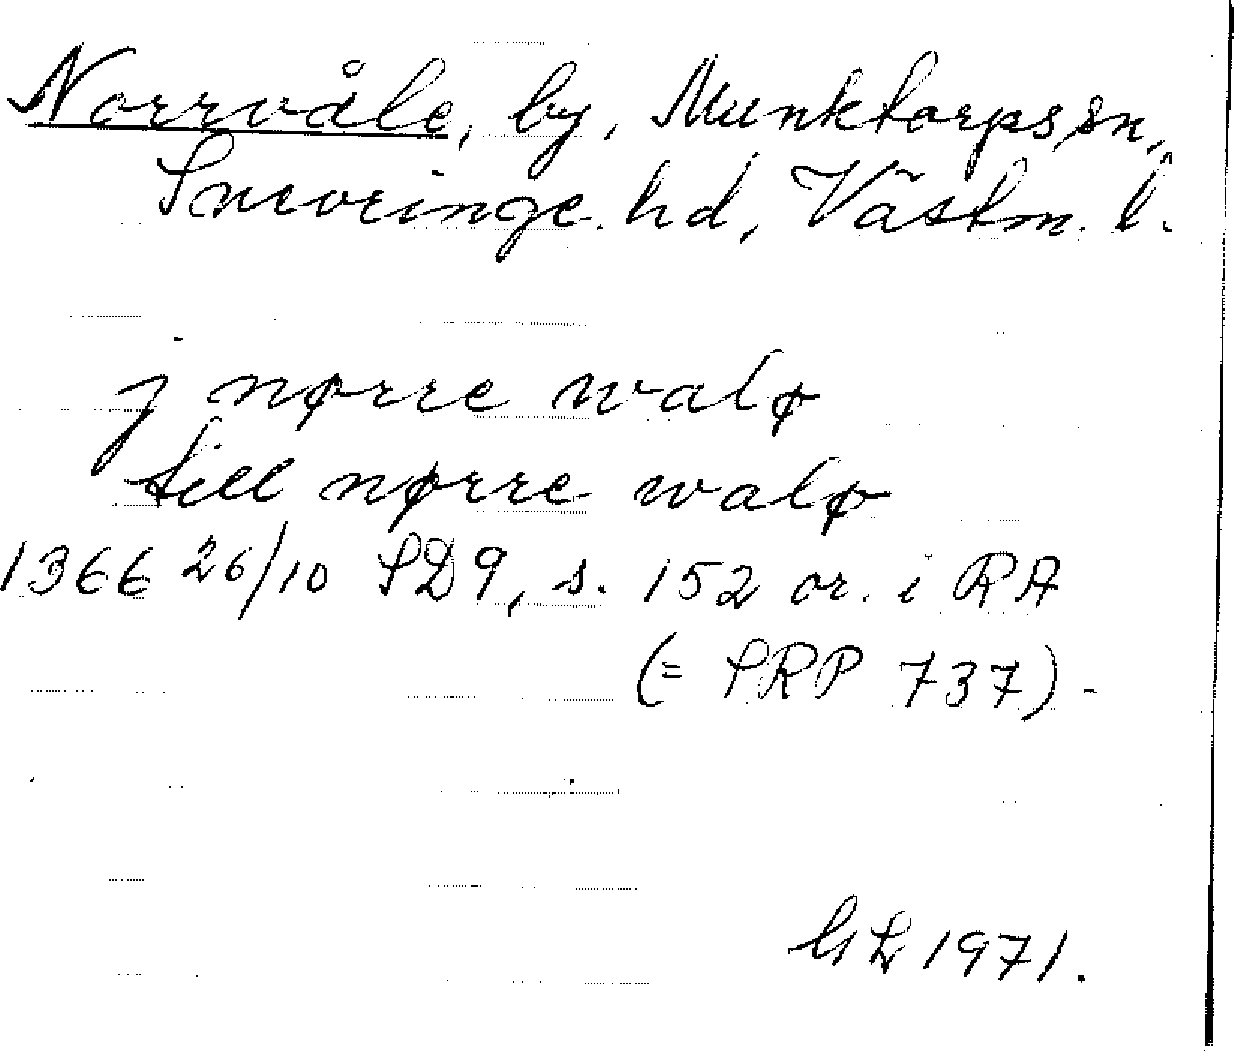 Norrvåle, by, Munktorps sn,
Snevringe hd, Västm. l.
j nørre walø
till nørre walø
1366 26/10 SD9, s. 152 or. i RA
(= SRP 737).
GL 1971.